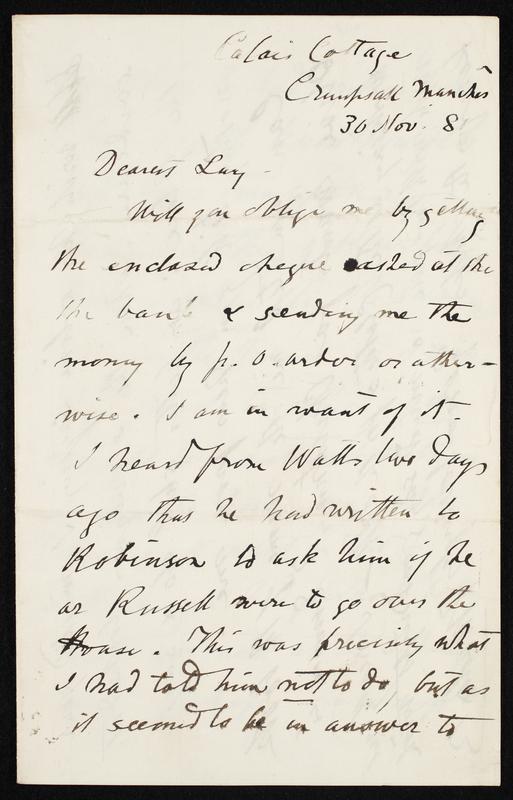 Calais Cottage
Crumpsall Manchr
30 Nov. 8
Dearest Lucy
Will you oblige me by getting
the enclosed cheque cashed at the
the bank & sending me the
money by p. o. order or other-
wise. I am in want of it.
I heard from Watts two days
ago that he had written to
Robinson to ask him if he
or Russell were to go over the
House. This was precisely what
I had told him not to do, but as
it seemed to be in answer to